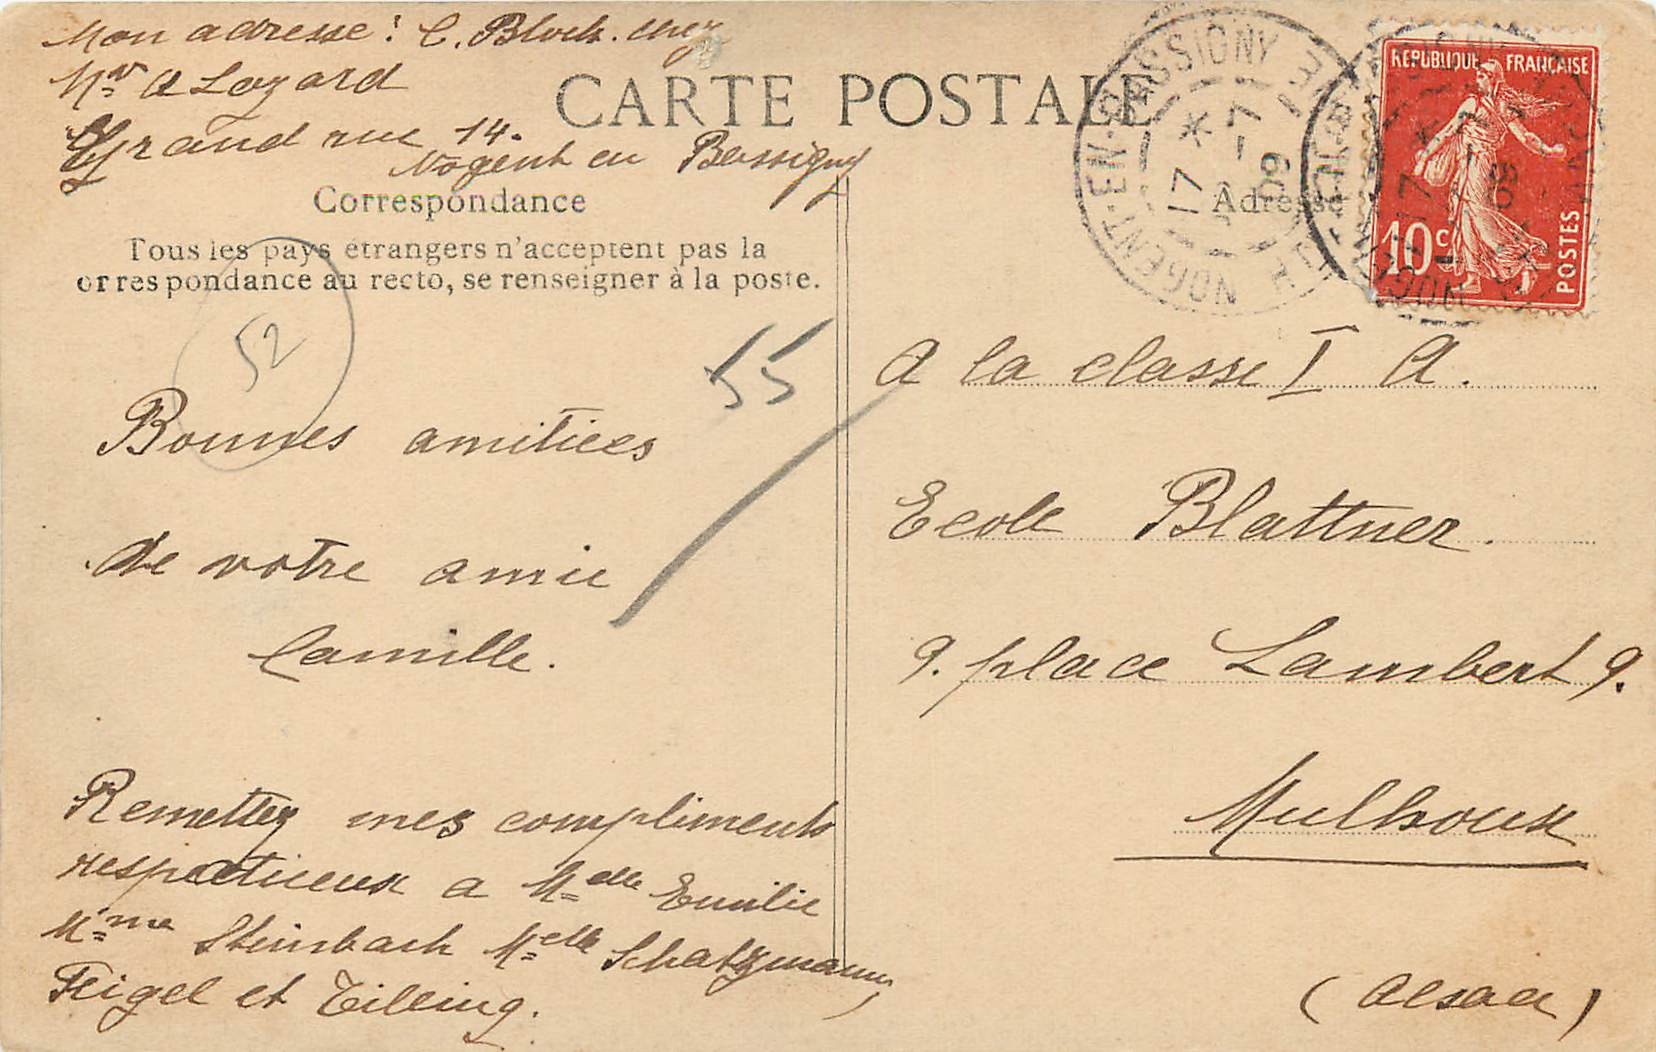 Mon adresse : C. Bloch. chez
Mr A Lazard
Grand rue 14.
Nogent en Bassigny
CARTE POSTALE
Correspondance
Tous les pays étrangers n'acceptent pas la
orrespondance au recto, se renseigner à la poste.
52
55
Bonnes amitiées
de votre amie
Camille.
Remettez mes compliments
respectueux a Melle Emilie
Mme Steinbach Melle Schatzmann,
Feigel et
Adresse
NOGENT-EN-BASSIGNY
17 * 7 - 7 09
REPUBLIQUE FRANÇAISE
10c
POSTES
A la classe I A.
Ecole Blattner.
9. place Lambert 9.
Mulhouse
(Alsace)